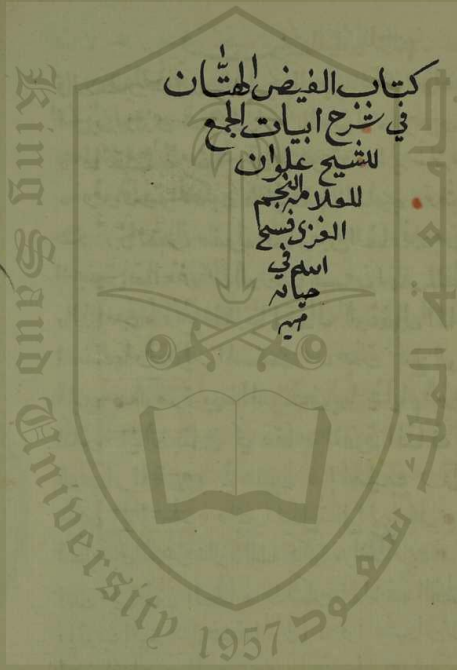 كتاب الفيض الهتَّان
في شرح ابيات الجمع
للشيخ علوان
للعلامه النجم
الغزى فسح
الله في
حياته
King Saud University
1957
جامعة الملك سعود